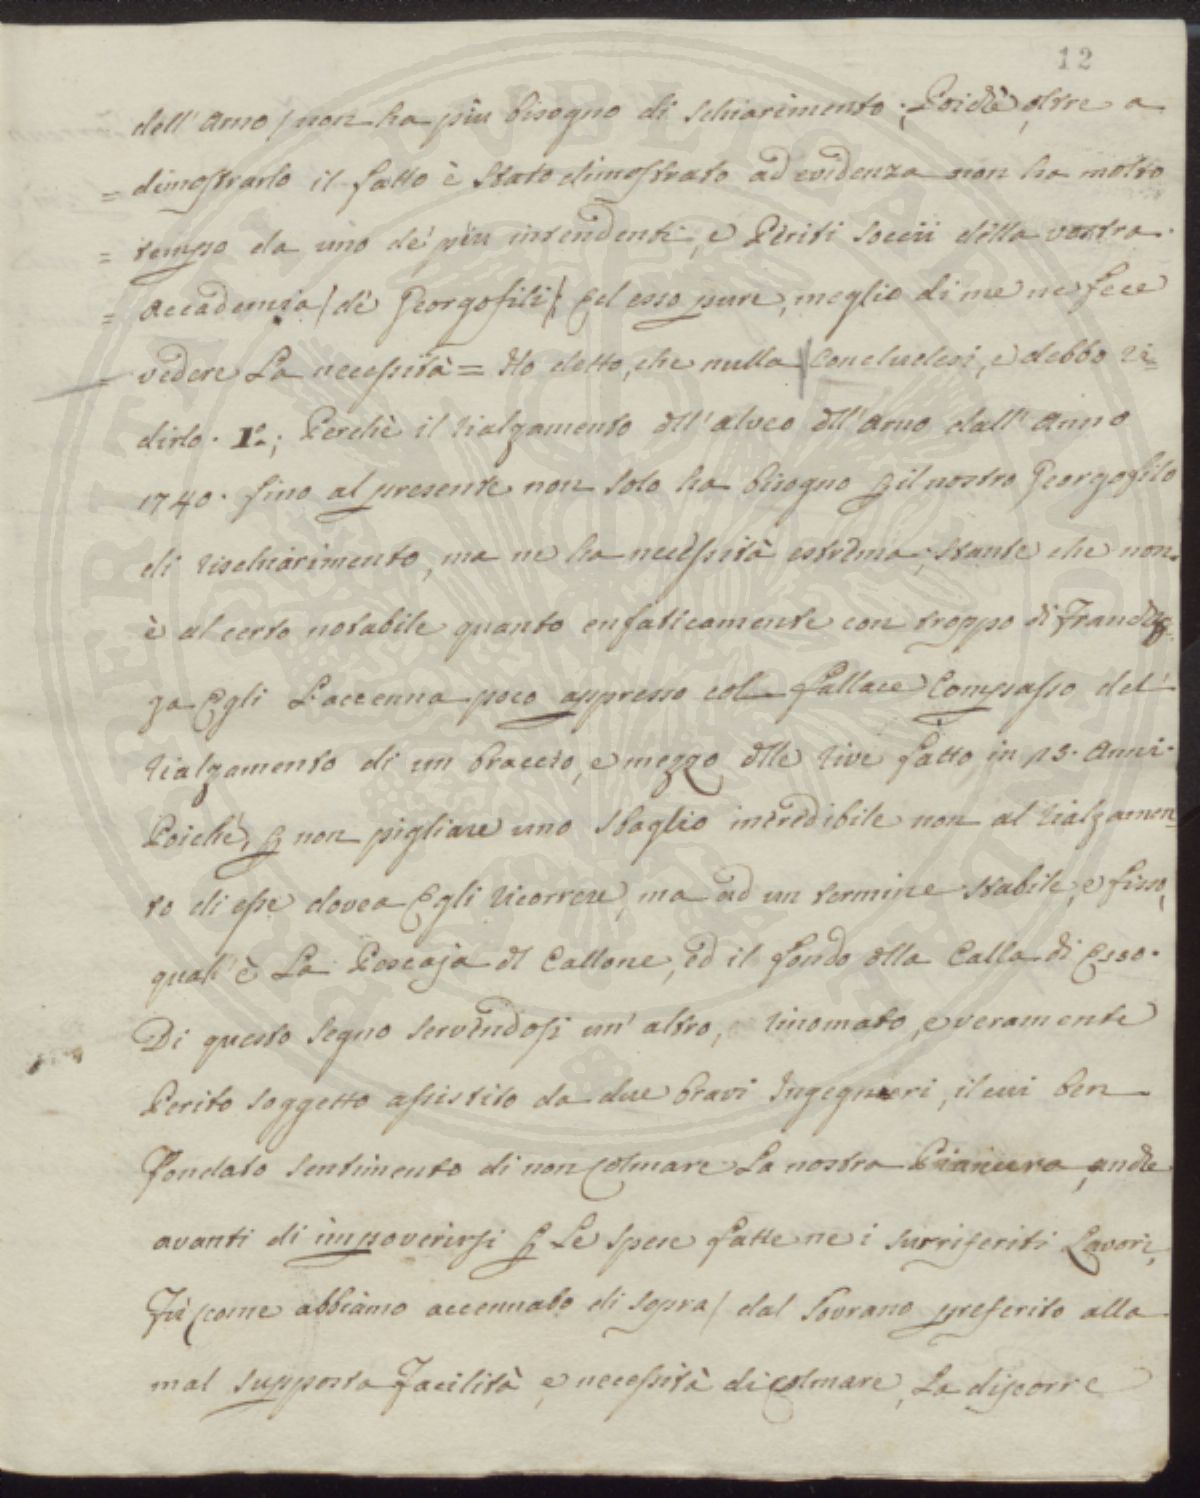 12
dell' Arno / non ha più bisogno di schiarimento; Poichè, oltre a
= dimostrarlo il fatto è stato dimostrato ad evidenza non ha molto
= tempo da uno de' più intendenti, e Periti Soccii della vostra
= Accademia / dè Georgofili / Ed esso pure, meglio di me ne fece
vedere La necessità = Ho detto, che nulla concludesi, e debbo ri=
dirlo. 1.º; Perchè il rialzamento dll' alveo dll' Arno dall' Anno
1740. fino al presente non solo ha bisogno p il nostro Georgofilo
di rischiarimento, ma ne ha necessità estrema; stante che non
è al certo notabile quanto enfaticamente con troppo di Franchez=
za Egli L'accenna poco appresso col fallace Compasso del
rialzamento di un braccio, e mezzo dlle rive fatto in 15. Anni.
Poichè, p non pigliare uno sbaglio incredibile non al rialzamen=
to di esse dovea Egli ricorrere, ma ad un termine stabile, e fisso,
qual' è La Pescaja dl Callone, ed il fondo dlla Calla di Esso.
Di questo segno servendosi un' altro, rinomato, e veramente
Perito soggetto assistito da due bravi Ingegnieri, il cui ben
fondato sentimento di non colmare La nostra Pianura, anche
avanti di impoverirsi p Le spese fatte ne i surriferiti Lavori,
Fù (come abbiamo accennato di sopra / dal Sovrano preferito alla
mal supposta Facilità, e necessità di colmare, La discorre